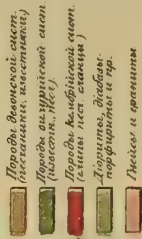 Породы девонской сист.
(песчаники, известняки)
Породы силурійской сист.
(известн., песч.)
Породы кембрійской сист.
(глины песч. сланцы)
Діориты, діабазы,
порфириты и пр.
Гнейсы и граниты.